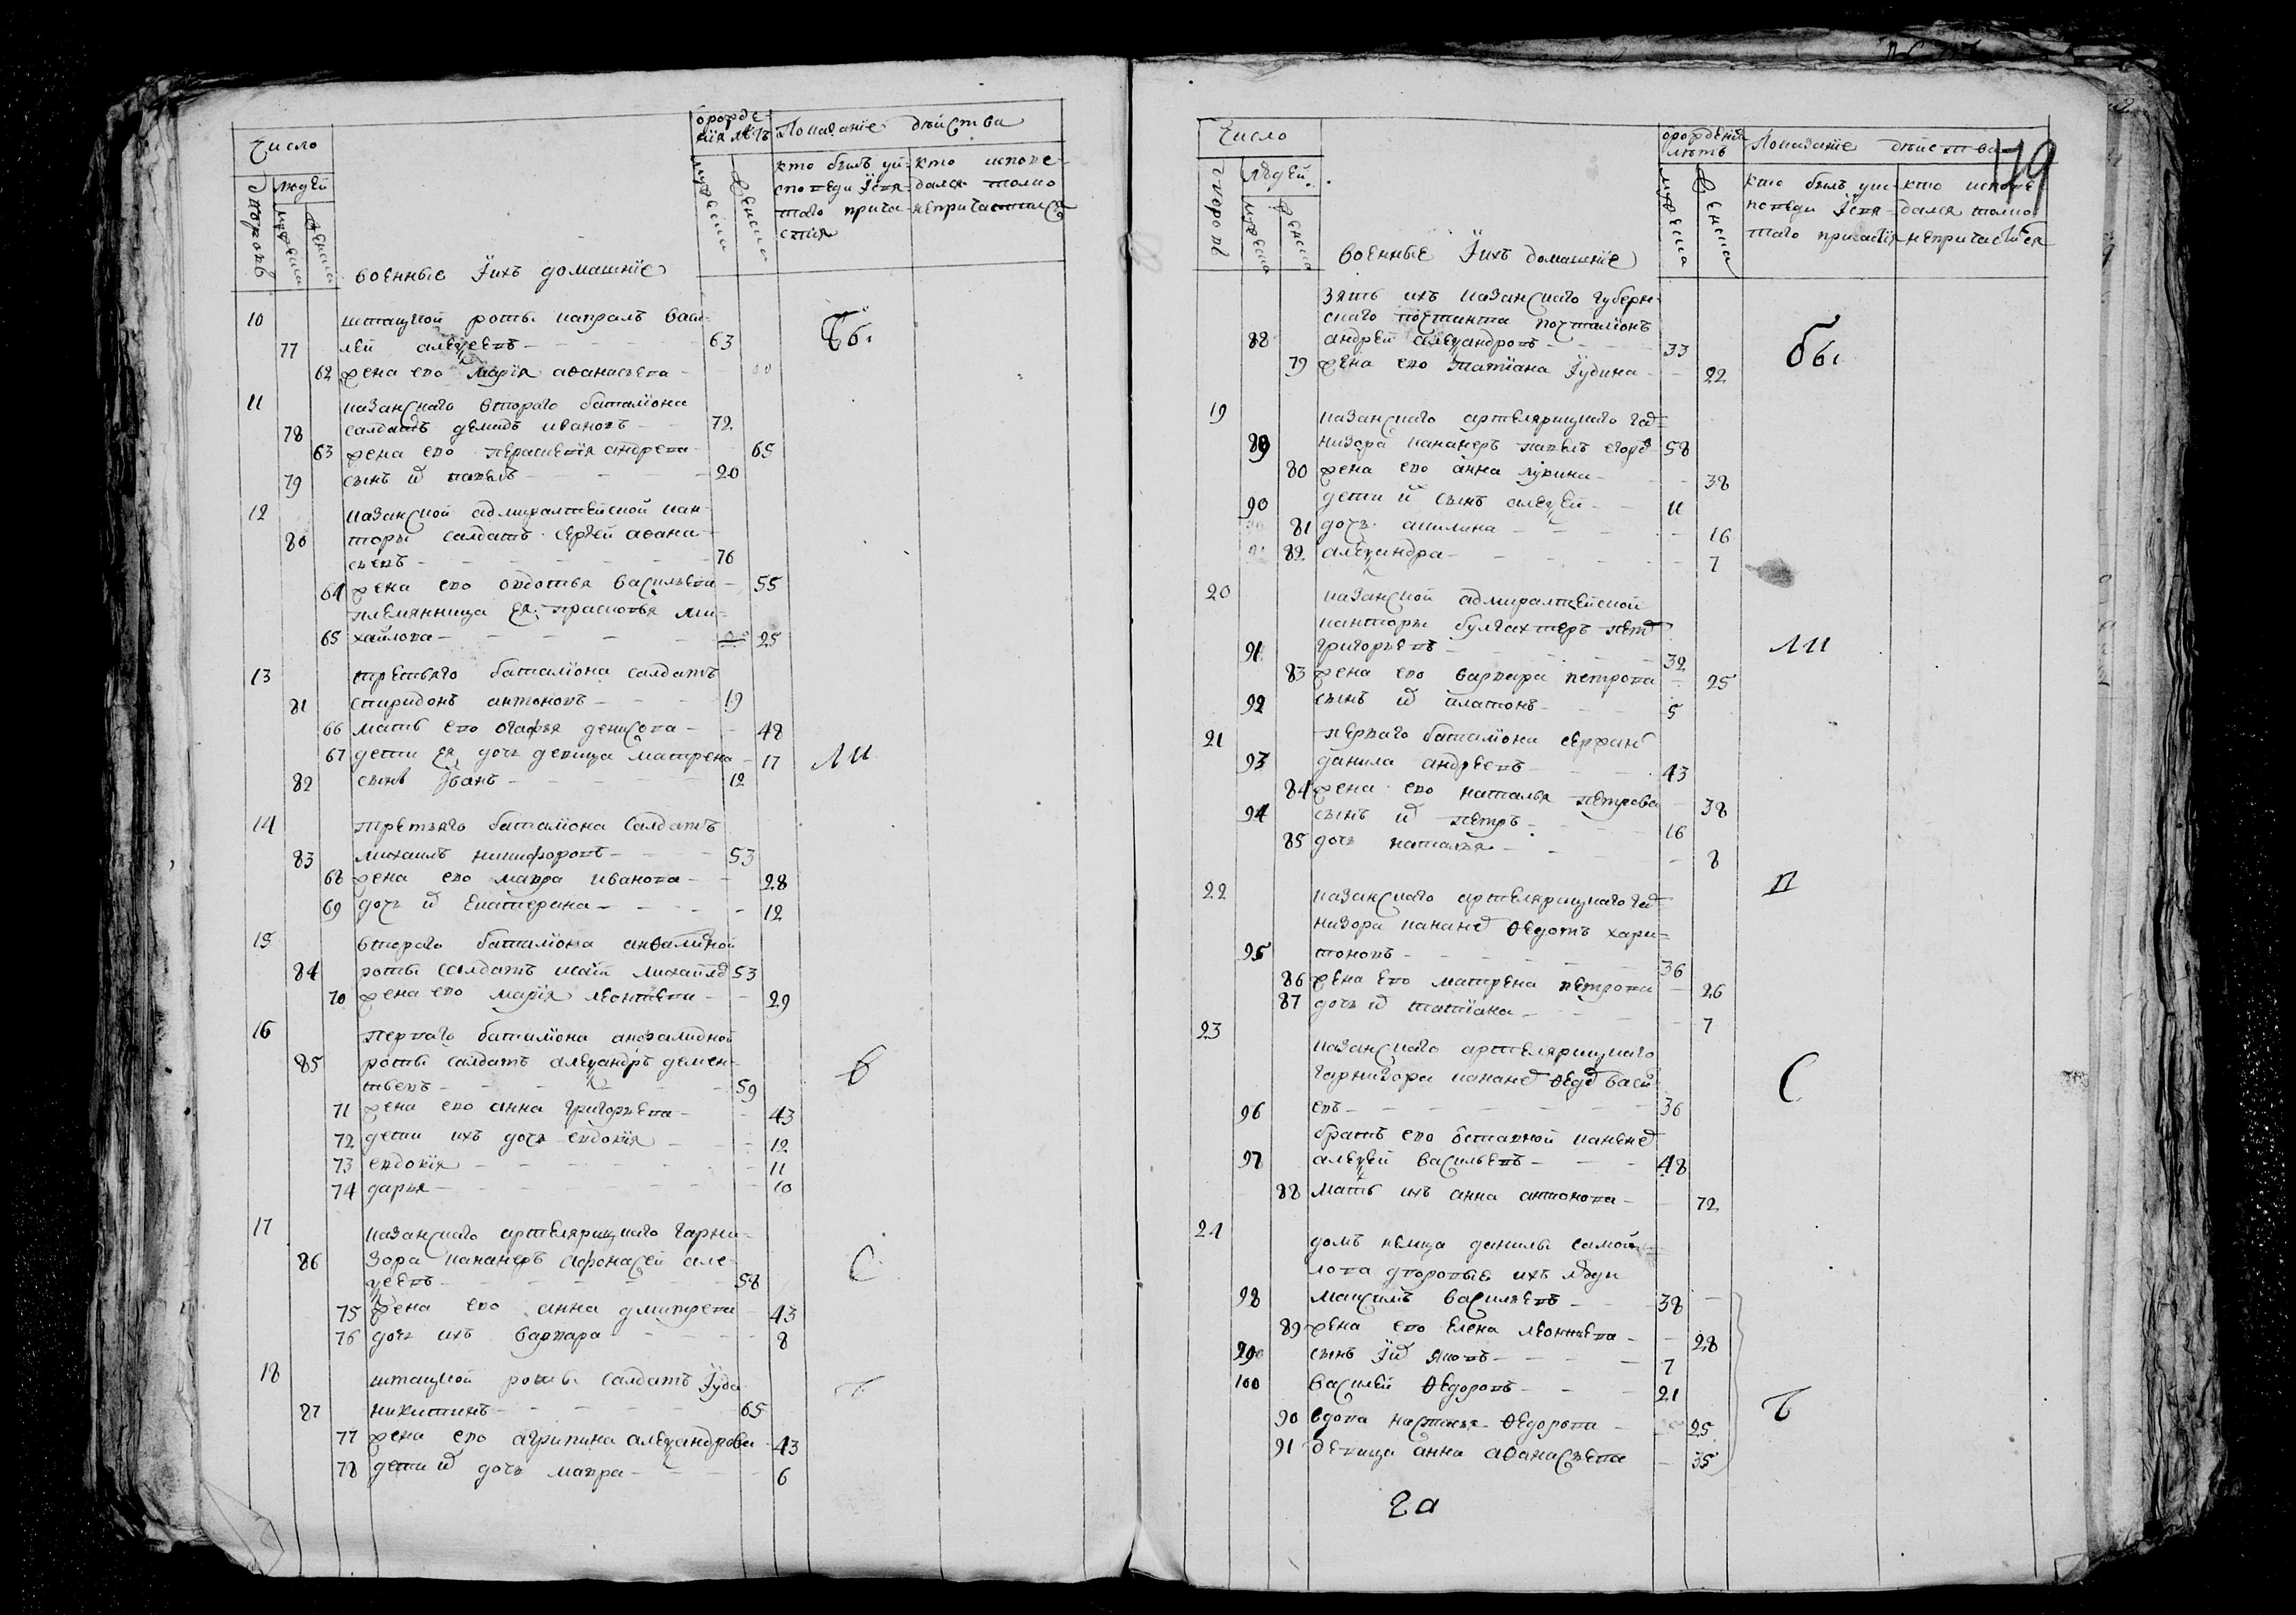 Число
людей
дворовъ
мужеска
женска
военные Їихъ домашнїе
мужеска
женска
Показанїе дѣйства
кто былъ уи-
споведи Їсвя-
таго прича-
стия
кто испове-
дался толко
непричастился
10
штатной роты капралъ васи-
77 лей алеѯеевъ 63
62 жена ево марїя аѳанасьева
11
казанского второго баталїона
78 салдатъ демидъ ивановъ 72
63 жена ево пераскевїя андрева 65
79 сынъ и павелъ 20
12
казанской адмиралтейской кан-
80 торы салдатъ сергей аѳана-
сьевъ 76
64 жена ево овдотья васильева 55
племянница ея прасковья ми-
65 хайлова 25
13
третьяго баталїона салдатъ
81 спиридонъ антоновъ 19
66 мать ево огафья денисова 48
67 дети ея дочь девица матрена 17
82 сынъ Їванъ 12
ли
14
третьяго баталїона салдатъ
83 михаилъ никифоровъ 53
68 жена ево мавра иванова 28
69 дочь и екатерина 12
15
второго баталїона анвалидной
84 роты салдатъ исай михайло 53
70 жена ево марїя леонтьева 29
16
перваго баталїона анвалидной
85 роты салдатъ алеѯандръ демен-
тьевъ 59
71 жена ево анна григорьева 43
72 дети ихъ дочь евдокїя 12
73 евдокїя 11
74 дарья 10
в
17
казанского артеляриского гарни-
86 зора кананеръ афонасей але-
ѯеевъ 58
75 жена ево анна дмитрева 43
76 дочь ихъ варвара 8
С
18
штатной роты салдатъ Їуда
87 никитинъ 65
77 жена ево агрипина алеѯандрова 43
78 дети и дочь мавра 6
79
Число
людей
дворовъ
мужеска
женска
военные Їихъ домашнїе
мужеска
женска
Показанїе дѣйства
кто былъ уис-
поведи Їсвя-
таго причастїя
кто испове
дался толко
непричастился
зять ихъ казанского губерн-
ского почтанта почталїонъ
88 андрей алеѯандровъ 33
79 жена ево татїана Їудина 22
бы
19
казанского артеляриского гар-
89 низора кананеръ павелъ егоро 58
80 жена ево анна лукина 38
90 дети и сынъ алеѯей 11
81 дочь акилина 16
82 алеѯандра 7
20
казанской адмиралтейской
канторы булгахтеръ петр
91 григорьевъ 32
83 жена ево варвара петрова 25
92 сынъ и платонъ 5
ли
21
перваго баталїона сержан
93 данила андреевъ 43
84 жена ево наталья петрова 38
94 сынъ и петръ 16
85 дочь наталья 8
22
казанского артеляриского гар-
низора канане ѳедотъ хари-
95 тоновъ 36
86 жена ево матрена петрова 26
87 дочь и татїана 7
п
23
казанского артеляриского
гарнизора канане ѳедо васи
96 евъ 36
братъ ево отставной канане
97 алеѯей васильевъ 48
88 мать ихъ анна антонова 72
С
24
домъ немца данилы самой-
лова дворовые ихъ люди
98 маѯимъ васильевъ 38
89 жена ево елена леонтьева 28
99 сынъ Їи яковъ 7
100 василей ѳедоровъ 21
90 вдова настасья ѳедорова 25
91 девица анна аѳанасьева 35